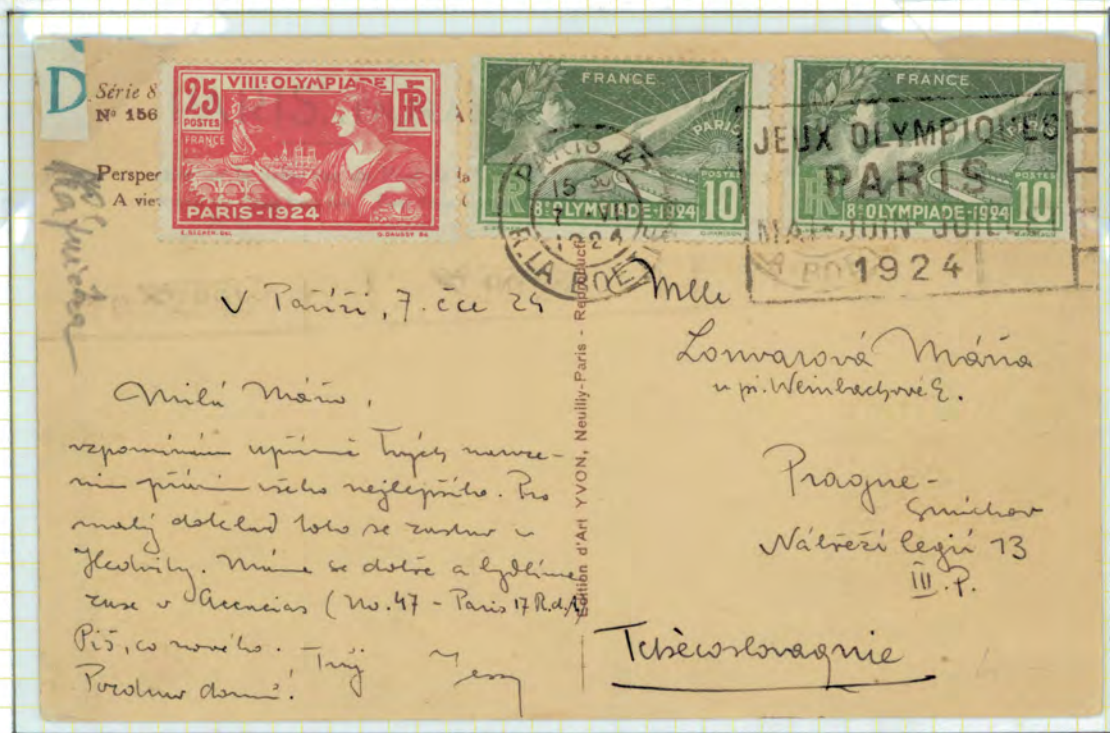 D
Série 8
Nº 156
Perspec
A vie
25
POSTES
FRANCE
VIIIE OLYMPIADE
RF
PARIS-1924
FRANCE
PARIS
POSTES
RF
8E OLYMPIADE-1924
10
FRANCE
POSTES
RF
8E OLYMPIADE-1924
10
PARIS 47
15 30
7 VII
1924
R. LA BOETIE
JEUX OLYMPIQUES
PARIS
MAI-JUIN-JUILLET
1924
V Paříži, 7. čce 24
Milá Máňo,
vzpomínám upřímně Tvých naroze-
nin přeji všeho nejlepšího. Pro
malý doklad toho se zastav u
Hedviky. Máme se dobře a bydlíme
zase v Accacias (No. 47 - Paris 17 R.d.A.
Piš, co nového.
Pozdrav domů! Tvůj
Édition d'Art YVON, Neuilly-Paris - Reproducti
Mlle
Lonvarová Máňa
u pí. Weinbachové E.
Prague-
Smíchov
Nábřeží legií 13
III. P.
Tchécoslovaquie